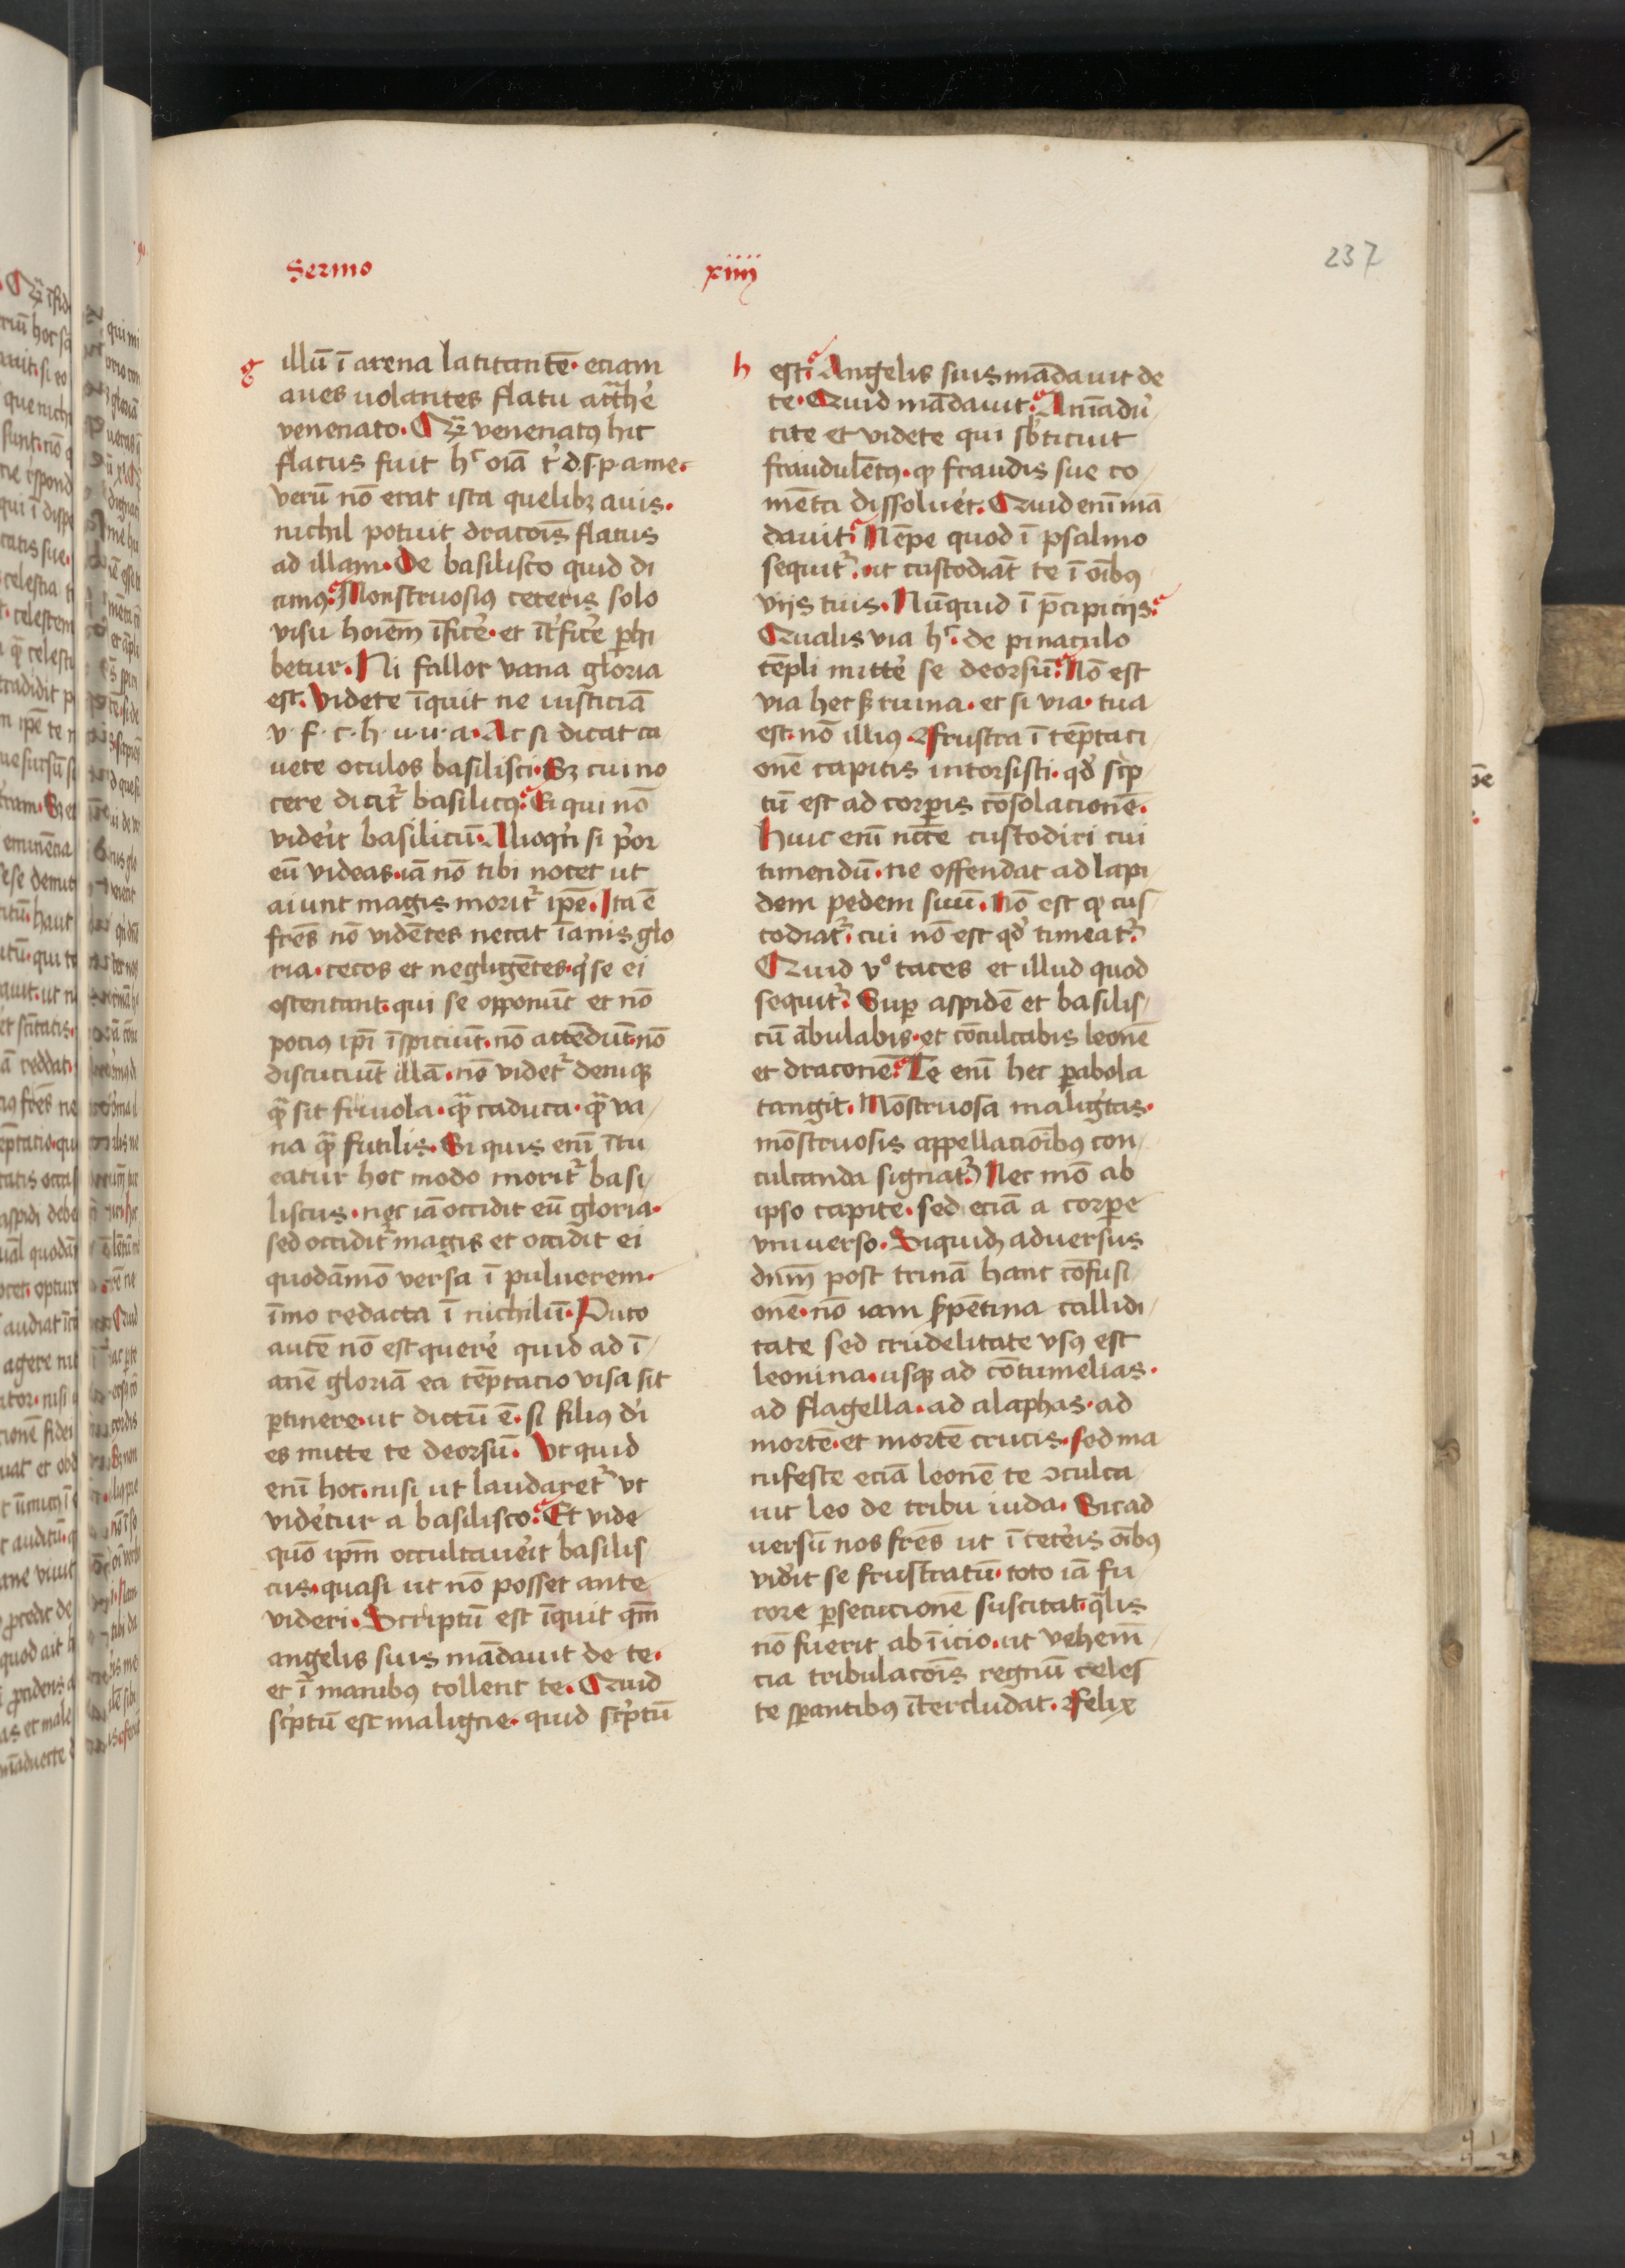 Sermo xiiij
237
g
illū ī arena latitantē. etiam
aues uolantes flatu att̄he᷒
venenato. Qͣ̄ venenatꝰ hic
flatus fuit hͨ oīa t᷒ d. s. p. a. me.
verū nō erat ista quelibꝫ auis.
nichil potuit dracōis flatus
ad illam. De basilisco quid di
cimꝰ? Monstruosiꝰ ceteris solo
visu hoiēm īfice᷒. et īt᷒fice᷒ ꝑhi
betur. Ni fallor vana gloria
est. Videte īquit ne iusticiā
v. f. c. h. u. u. a. Ac si dicat ca
uete oculos basilisci. Sꝫ cui no
cere dicit᷒ basilicꝰ? Ei qui nō
vide᷒it basilicū. Alioqn᷒ si p᷒or
eū videas. iā nō tibi nocet ut
aiunt magis morit᷒ ip̄e. Ita ē
fr̄es nō vidētes necat īanis glo
ria. cecos et negligētes. q᷒ se ei
ostentant. qui se opponūt et nō
pociꝰ ip̄i īspiciūt. nō attēdūt. nō
discuciūt illā. nō videt᷒ deniqꝫ
qͣ̄ sit friuola. qͣ̄ caduca. qͣ̄ va/
na qͣ̄ futilis. Si quis enī ītu
eatur hoc modo morit᷒ basi/
liscus. nec iā occidit eū gloria.
sed occidit᷒ magis et occidit ei
quodāmō versa ī puluerem.
īmo redacta ī nichilū. Puto
autē nō est quere᷒ quid ad ī/
anē gloriā ea tēptacio visa sit
ꝑtinere. ut dictū ē. si filiꝰ d᷒i
es mitte te deorsū. Ut quid
enī hoc. nisi ut laudaret᷒ ut
vide᷒tur a basilisco? Et vide
quō ip̄m occultaue᷒it basilis
cus. quasi ut nō posset ante
videri. Scriptū est īquit qm̄
angelis suis mādauit de te.
et ī manibꝰ tollent te. Quid
sc᷒ptū est maligne. quid sc᷒ptū
h
est? Angelis suis mādauit de
te. Quid mādauit? Anīadu᷒/
tite et videte qui sb᷒ticuit
fraudulētꝰ. ꝙ fraudis sue co/
mēta dissolue᷒t. Quid enī mā
dauit? Nēpe quod ī psalmo
sequit᷒. ut custodiāt te ī oībꝰ
viis tuis. Nūquid ī p̄cipiciis?
Qualis via hͨ. de pinaculo
tēpli mitte᷒ se deorsū? Nō est
via hec sꝫ ruina. et si via. tua
est. nō illiꝰ. Frustra ī tēptaci
onē capitis intorsisti. qd᷒ sc᷒p
tū est ad corꝑis cōsolacionē.
Huic enī nc̄ce custodiri cui
timendū. ne offendat ad lapi
dem pedem suū. Nō est ꝙ cus
todiat᷒. cui nō est qd᷒ timeat᷒.
Quid v᷒o taces et illud quod
sequit᷒. Suꝑ aspidē et basilis/
cū ābulabis. et cōculcabis leonē
et draconē? Te enī hec ꝑabola
tangit. Mōstruosa malig᷒tas.
mōstruosis appellacioībꝰ con/
culcanda signat᷒. Nec mō ab
ipso capite. sed eciā a corꝑe
vniuerso. Siquidꝫ aduersus
dnm̄ post trinā hanc cōfusi/
onē. nō iam s᷒pētina callidi/
tate sed crudelitate vsꝰ est
leonina. usqꝫ ad cōtumelias.
ad flagella. ad alaphas. ad
mortē. et mortē crucis. sed ma
nifeste eciā leonē te ↄculca
uit leo de tribu iuda. Sic ad
uersū nos fr̄es ut ī cete᷒is oībꝰ
vide᷒it se frustratū. toto iā fu
rore ꝑsecucionē suscitat. q̄lis
nō fuerit ab īicio. ut vehem̄/
cia tribulacōis regnū celes
te sꝑantibꝰ ītercludat. Felix